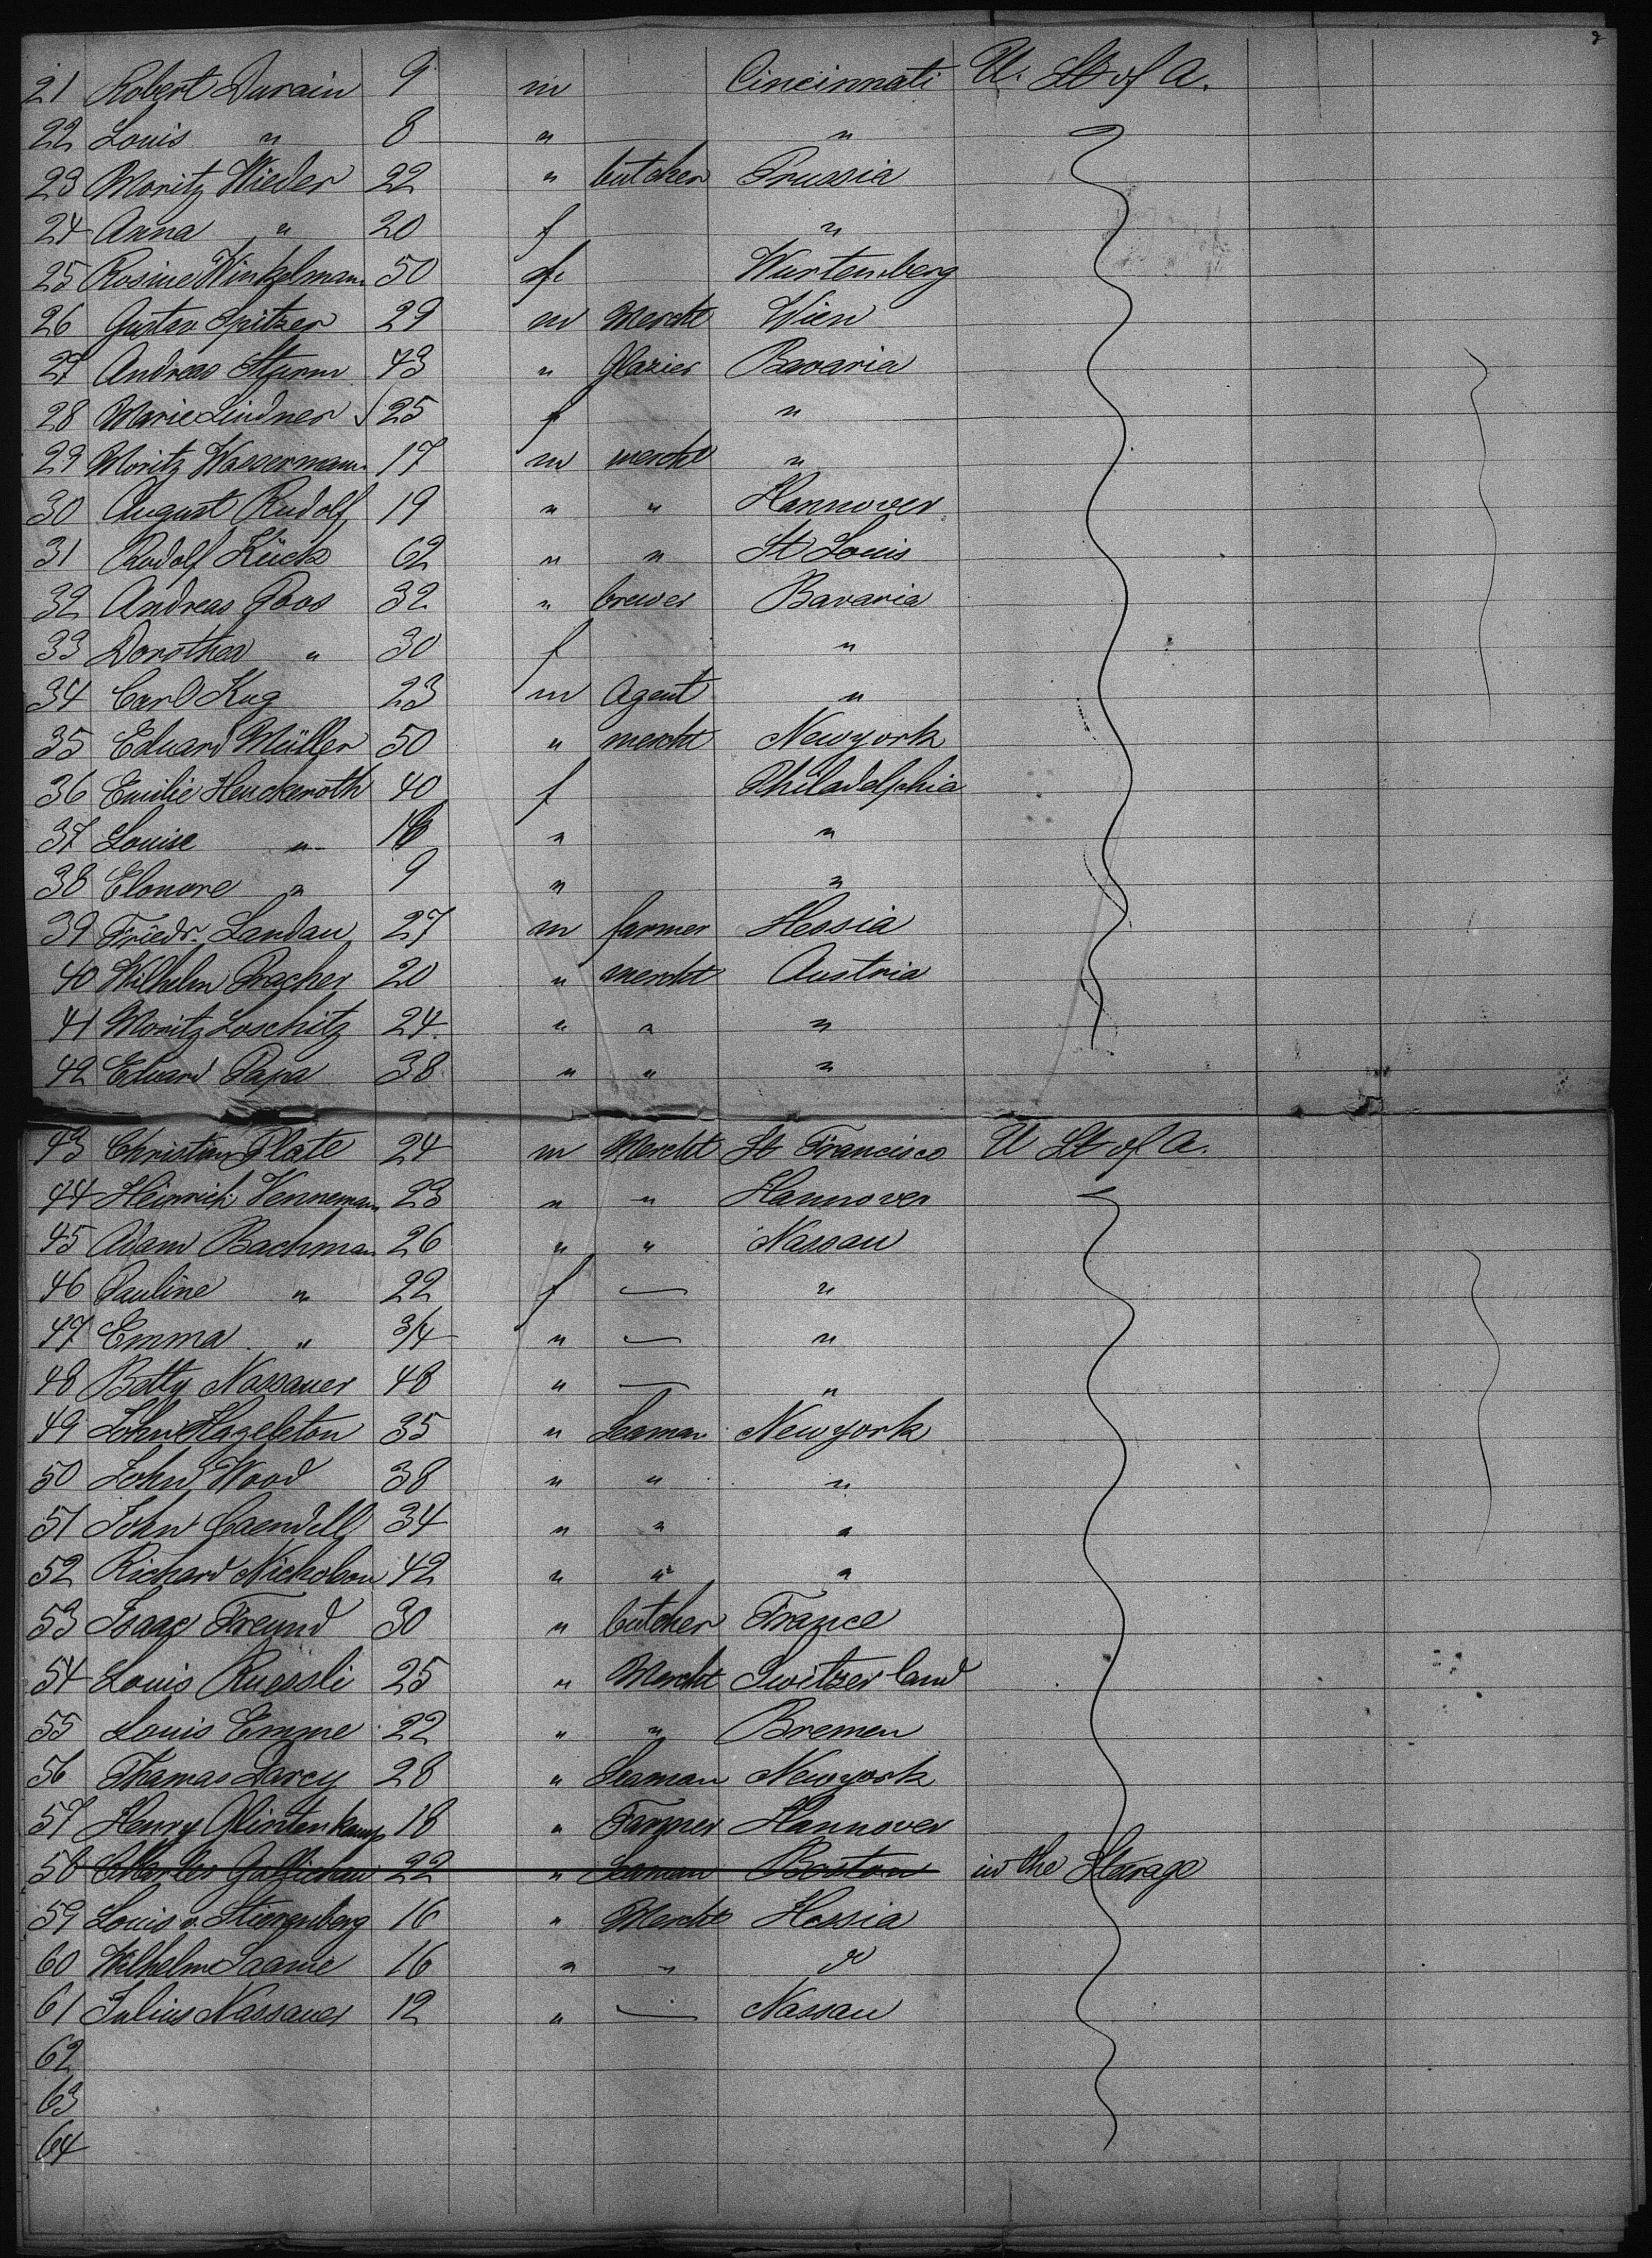 21 Robert Durain 9 m Cincinnati U. St of A.
22 Louis " 8 " "
23 Moritz Wieder 22 " butcher Prussia
24 Anna " 20 f "
25 Rosine Winkelmann 50 f Wurtemberg
26 Gustav Spitzer 29 m Mercht Wien
27 Andreas Sturm 43 " Glazier Bavaria
28 Marie Lindner 25 f "
29 Moritz Wassermann 17 m mercht "
30 August Rudolf 19 " " Hannover
31 Rudolf Kück 62 " " St Louis
32 Andreas Poos 32 " brewer Bavaria
33 Dorothea " 30 f "
34 Carl Kug 23 m Agent "
35 Eduard Müller 50 " mercht Newyork
36 Emilie Heuckeroth 40 f Philadelphia
37 Louise " " "
38 Elonore " 9 " "
39 Friedr. Landau 27 m farmer Hessia
40 Wilhelm Pracher 20 " mercht Austria
41 Moritz Loschitz 24 " " "
42 Eduard Papa 38 " " "
43 Christian Plate 24 m Mercht St Francisco U St of A.
44 Heinrich Vennemann 23 " " Hannover
45 Adam Bachman 26 " " Nassau
46 Pauline " 22 f — "
47 Emma " 3/4 " — "
48 Betty Nassauer 48 " — "
49 John Hazelton 35 " Seaman Newyork
50 John Wood 38 " " "
51 John 34 " " "
52 Richard Nickolson 42 " " "
53 Isaac Freund 30 " butcher France
54 Louis Ruessli 25 " Mercht Switzerland
55 Louis Emme 22 " " Bremen
56 Thamas Darcy 28 " Seaman Newyork
57 Henry Glintenkamp 18 " Farmer Hannover
58 Charles 22 " Seaman Boston in the Stearage
59 Louis v. 16 " Mercht Hessia
60 Wilhelm Saame 16 " " "
61 Julius Nassauer 12 " — Nassau
62
63
64